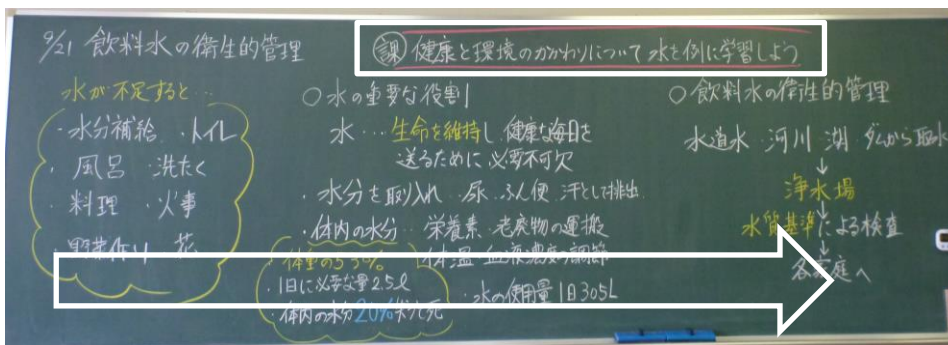 9/21 飲料水の衛生的管理
課 健康と環境のかかわりについて 水を例に学習しよう
水が不足すると…
・水分補給 ・トイレ
・風呂 ・洗たく
・料理 ・火事
・野菜作り ・花
○水の重要な役割
水…生命を維持し 健康な毎日を
送るために 必要不可欠
・水分を取り入れ 尿 ふん便 汗として排出
・体内の水分… 栄養素・老廃物の運搬
体温
・体重の
・1日に必要な量2.5ℓ
・体内の水分20%
・水の使用量1日305L
○飲料水の衛生的管理
水道水…河川 湖 ダムから取水
↓
浄水場
↓
水質基準による検査
↓
各家庭へ